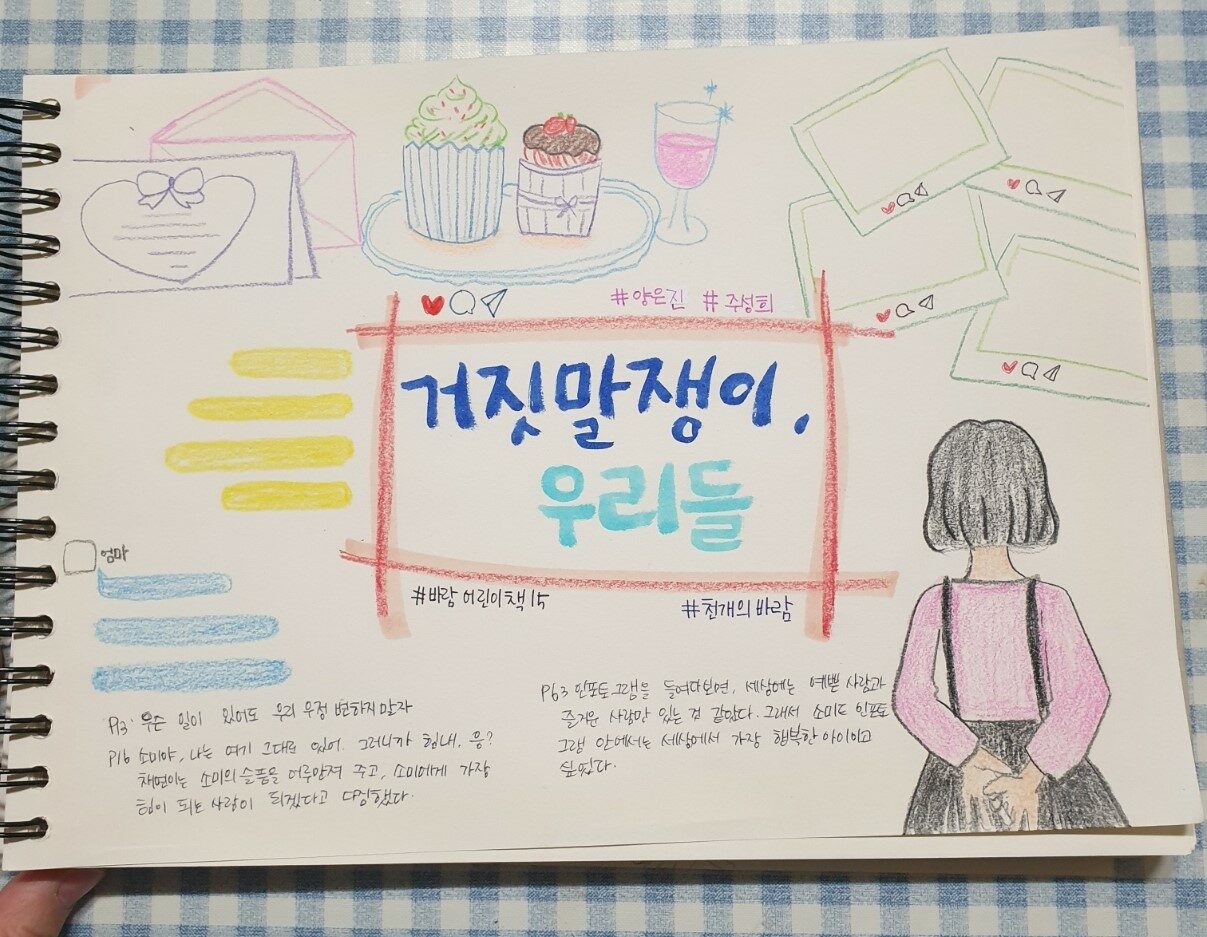 #양은진 #주성희
거짓말쟁이,
우리들
#바람 어린이책 15
#천개의바람
엄마
P13. 무슨 일이 있어도 우리 우정 변하지 말자
P16 소미야, 나는 여기 그대로 있어. 그러니까 힘내, 응?
채연이는 소미의 슬픔을 어루만져 주고, 소미에게 가장
힘이 되는 사람이 되겠다고 다짐했다.
P63 인포토그램을 들여다보면, 세상에는 예쁜 사람과
즐거운 사람만 있는 것 같았다. 그래서 소미도 인포토
그램 안에서는 세상에서 가장 행복한 아이이고
싶었다.